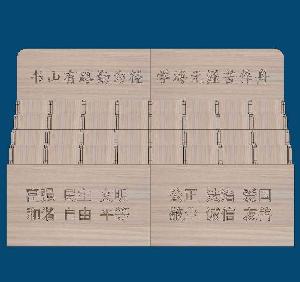 书山有路勤为径 学海无涯苦作舟
富强 民主 文明 公正 法治 爱国
和谐 自由 平等 敬业 诚信 友善